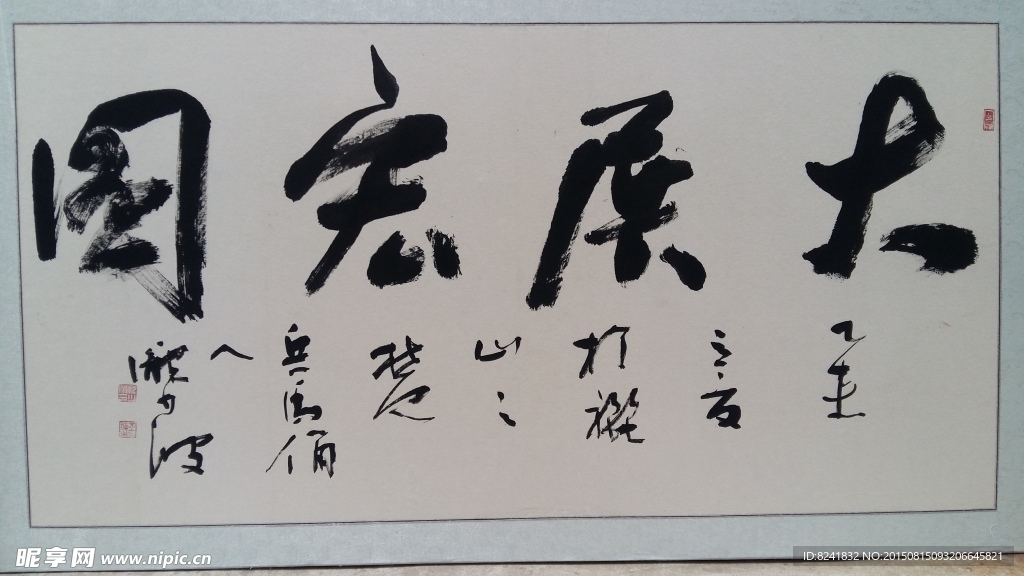 大展宏图
乙未
之夏
于骊
山之
麓
兵马俑
人
少波
昵享网 www.nipic.cn
ID:8241832 NO:20150815093206645821